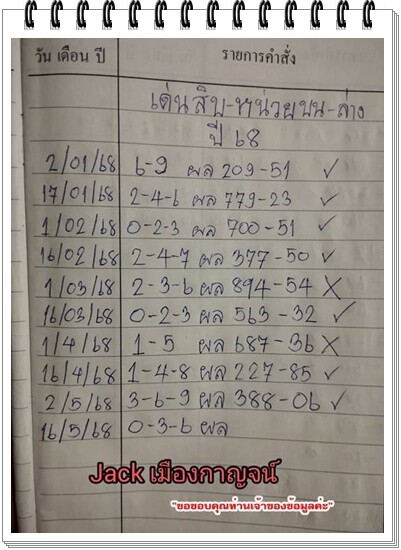 วัน เดือน ปี รายการคำสั่ง
เด่นสิบ-หน่วยบน-ล่าง
ปี 68
2/01/68 6-9 ผล 209-51 ✓
17/01/68 2-4-6 ผล 779-23 ✓
1/02/68 0-2-3 ผล 700-51 ✓
16/02/68 2-4-7 ผล 377-50 ✓
1/03/68 2-3-6 ผล 894-54 X
16/03/68 0-2-3 ผล 563-32 ✓
1/4/68 1-5 ผล 687-36 X
16/4/68 1-4-8 ผล 227-85 ✓
2/5/68 3-6-9 ผล 388-06 ✓
16/5/68 0-3-6 ผล
Jack เมืองกาญจน์
"ขอขอบคุณท่านเจ้าของข้อมูลค่ะ"